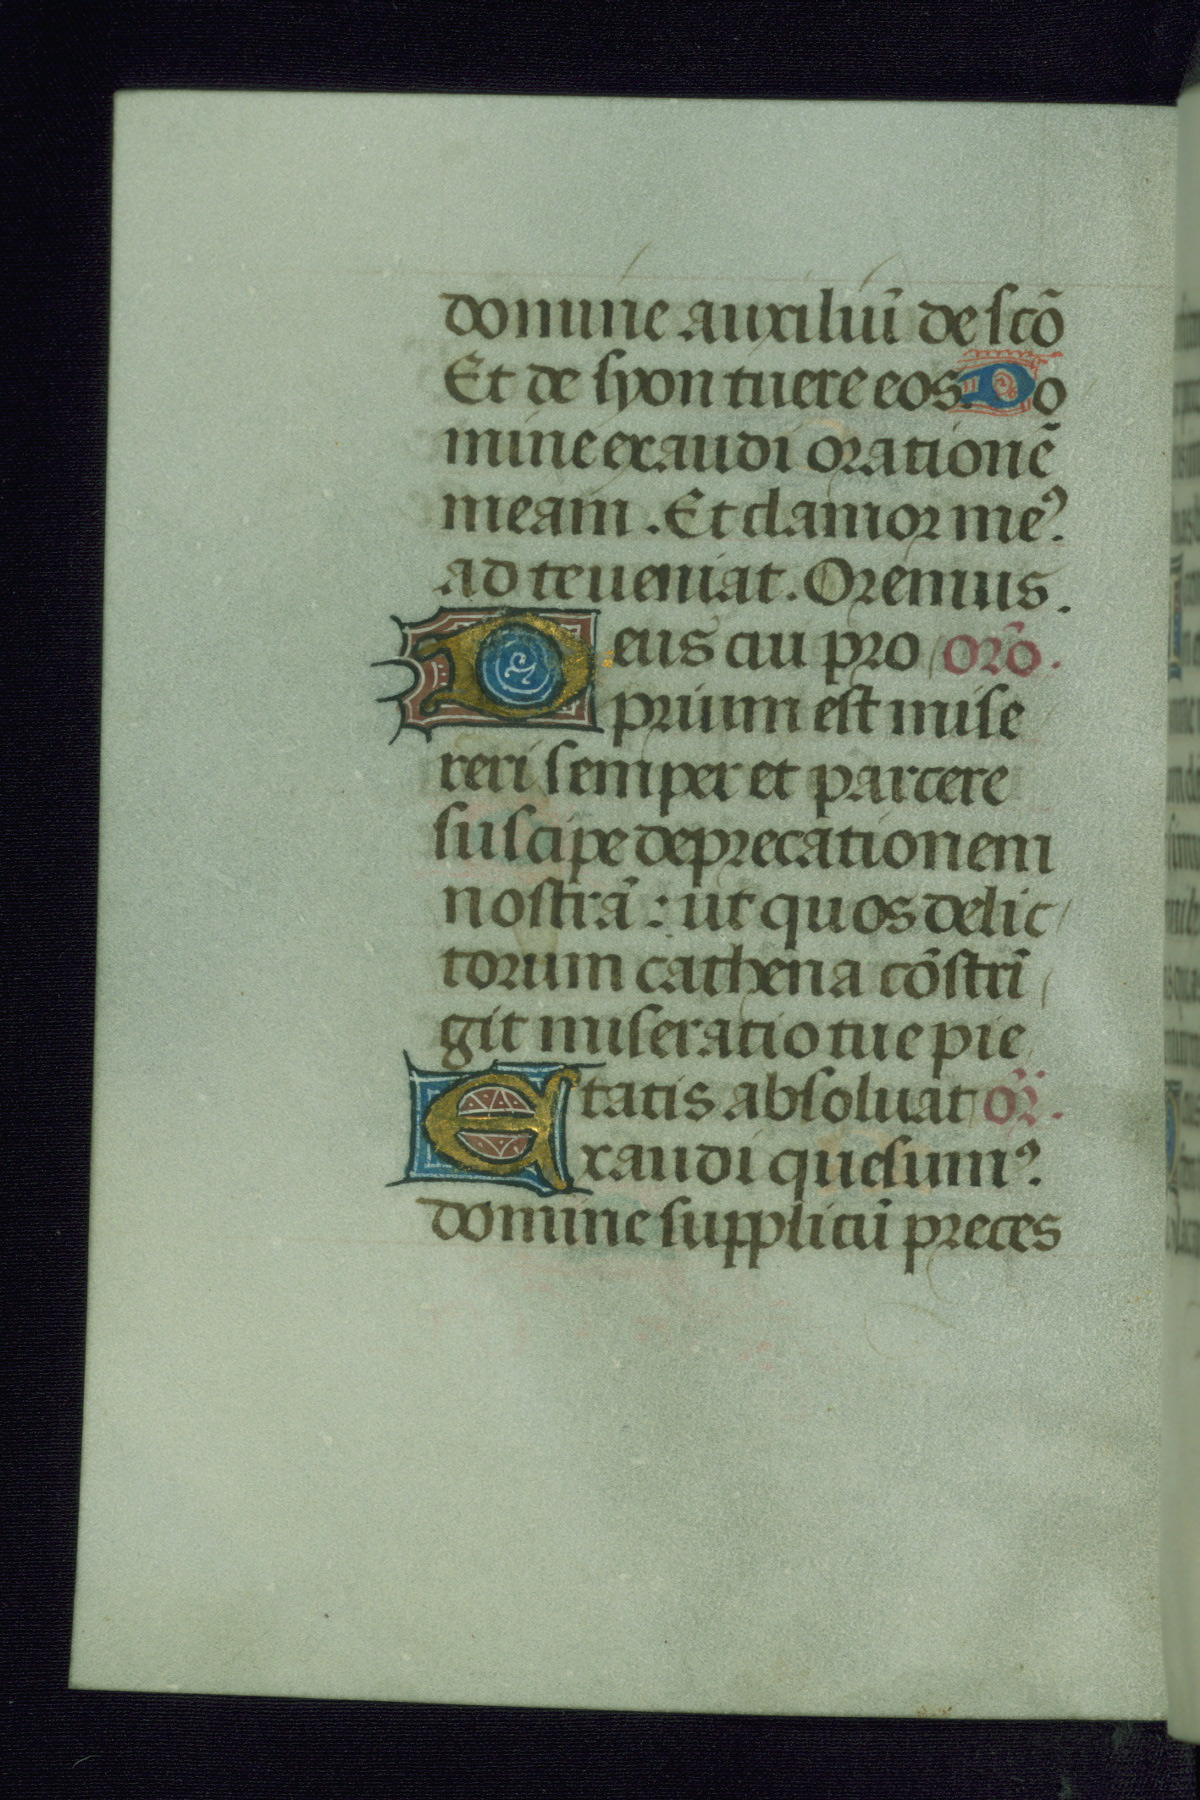 domine auxiliū de scō
Et de syon tuere eos. Do
mine exaudi orationē
meam. Et clamor me⁹.
ad te veniat. Oremus.
Deus cui pro orō.
prium est mise
reri semper et parcere
suscipe deprecationem
nostrā: ut quos delic
torum cathena cōstrī
git miseratio tue pie
tatis absoluat or̄.
Exaudi quesum⁹.
domine supplicū preces